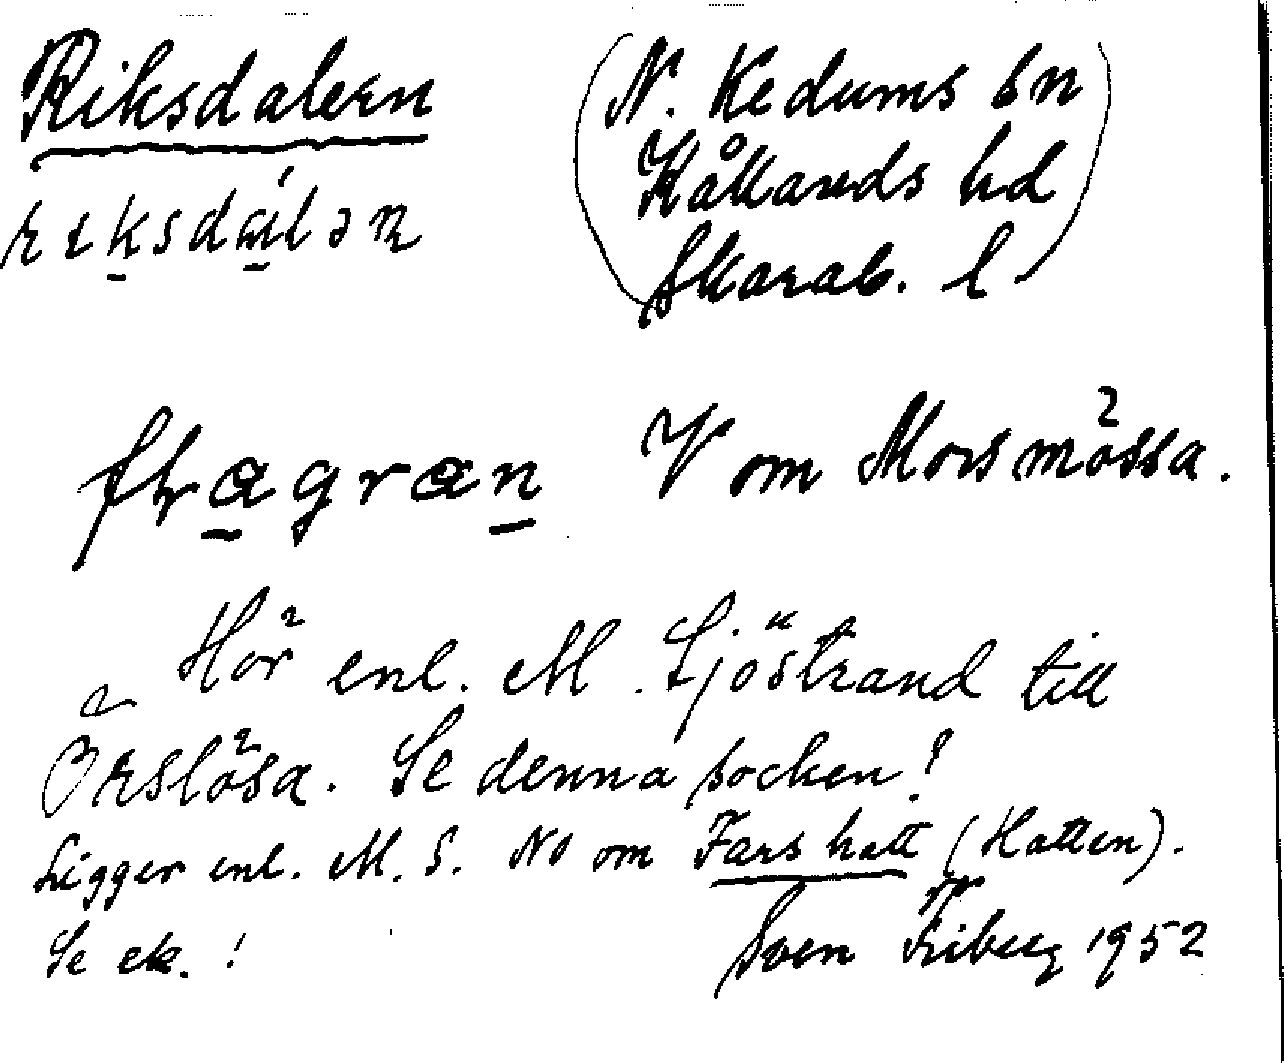 Riksdalern
(N. Kedums sn
Kållands hd
Skarab. l.)
rıksdálən
fkragran V om Morsmössa.
Hör enl. M. Sjöstrand till
Örslösa. Se denna socken!
Ligger enl. M. S. NO om Fars hatt (Hatten).
Se ek.!
Sven Friberg 1952